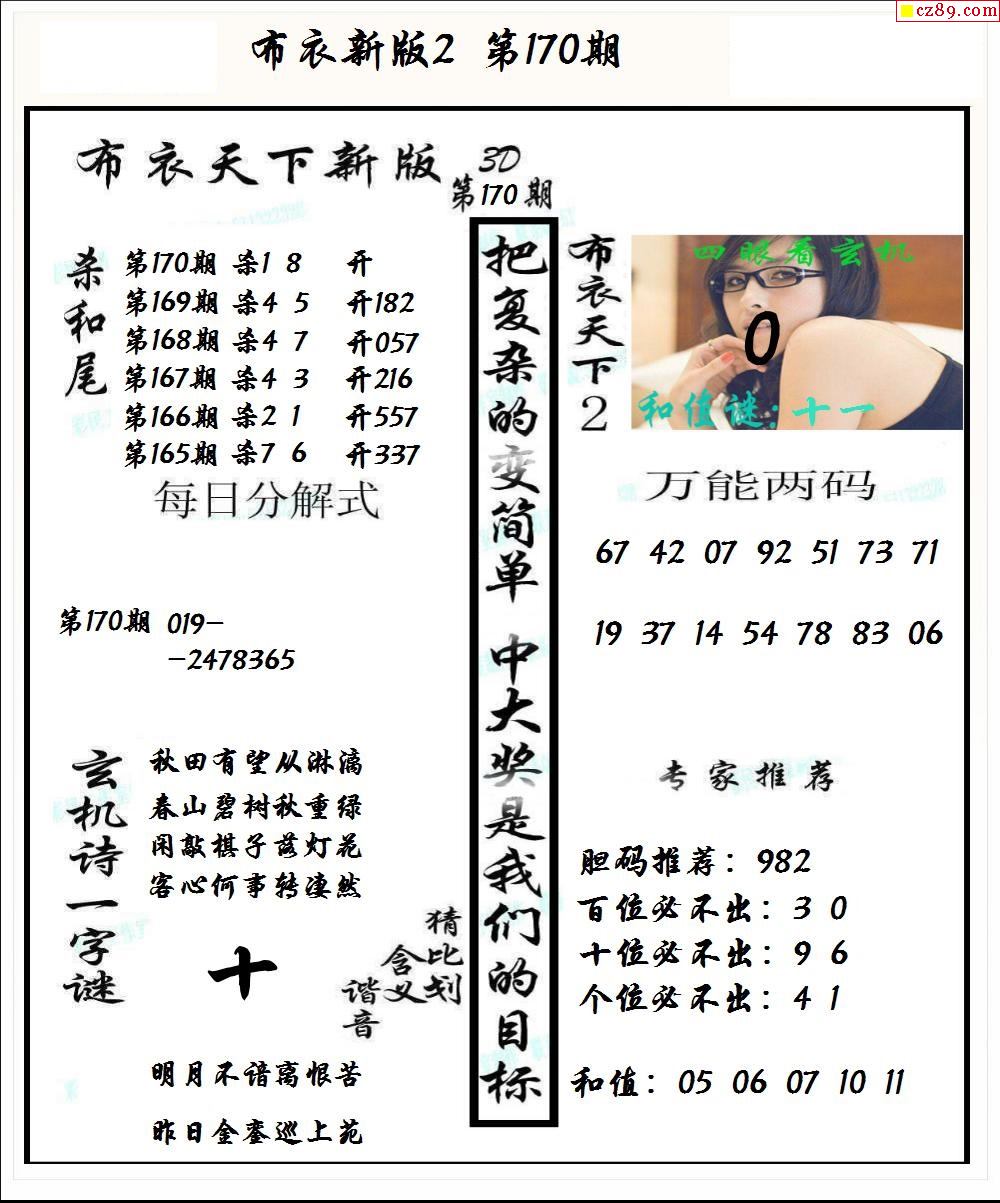 cz89.com
布衣新版2 第170期
布衣天下新版 3D
第170期
杀和尾
第170期 杀1 8 开
第169期 杀4 5 开182
第168期 杀4 7 开057
第167期 杀4 3 开216
第166期 杀2 1 开557
第165期 杀7 6 开337
每日分解式
第170期 019-
-2478365
玄机诗一字谜
秋田有望从淋漓
春山碧树秋重绿
闲敲棋子落灯花
客心何事转凄然
十
猜比划
含义
谐音
明月不谙离恨苦
昨日金銮巡上苑
把复杂的变简单 中大奖是我们的目标
布衣天下2
四眼看玄机
0
和值谜:十一
万能两码
67 42 07 92 51 73 71
19 37 14 54 78 83 06
专家推荐
胆码推荐：982
百位必不出：3 0
十位必不出：9 6
个位必不出：4 1
和值：05 06 07 10 11